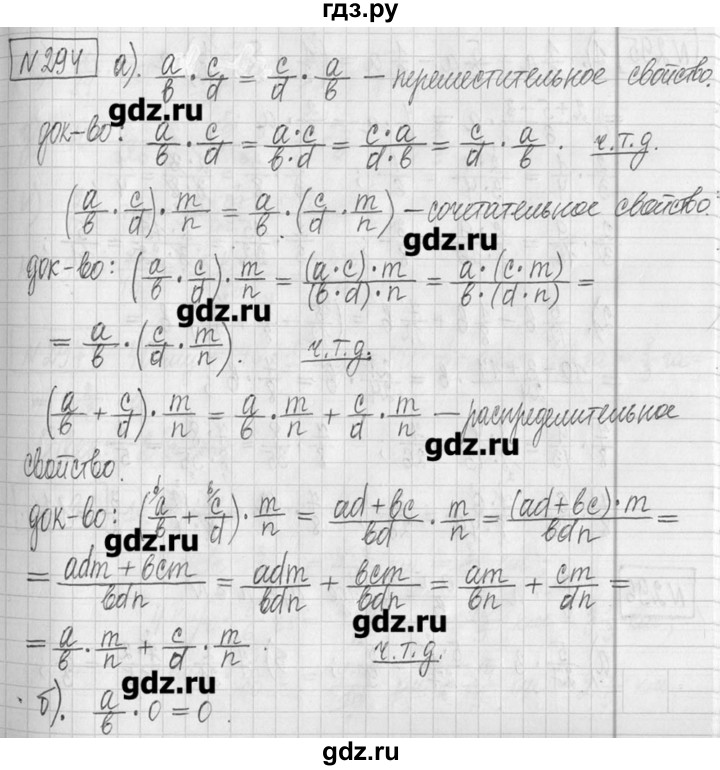 гдз.ру
N 294 а). a/b · c/d = c/d · a/b — переместительное свойство.
gdz.ru
док-во: a/b · c/d = a·c/b·d = c·a/d·b = c/d · a/b . ч.т.д.
(a/b · c/d) · m/n = a/b · (c/d · m/n) — сочетательное свойство.
gdz.ru
док-во: (a/b · c/d) · m/n = (a·c)·m/(b·d)·n = a·(c·m)/b·(d·n) =
gdz.ru
= a/b · (c/d · m/n). ч.т.д.
(a/b + c/d) · m/n = a/b · m/n + c/d · m/n — распределительное
gdz.ru
свойство.
док-во: (ᵈa/b + ᵇc/d) · m/n = ad+bc/bd · m/n = (ad+bc)·m/bdn =
gdz.ru
= adm + bcm/bdn = adm/bdn + bcm/bdn = am/bn + cm/dn =
gdz.ru
= a/b · m/n + c/d · m/n . ч.т.д.
gdz.ru
б). a/b · 0 = 0 .
gdz.ru